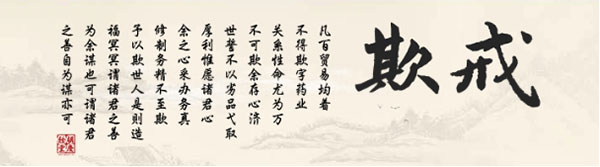 戒欺
凡百贸易均着
不得欺字药业
关系性命尤为万
不可欺余存心济
世誓不以劣品弋取
厚利惟愿诸君心
余之心采办务真
修制务精不至欺
予以欺世人是则造
福冥冥谓诸君之善
为余谋也可谓诸君
之善自为谋亦可